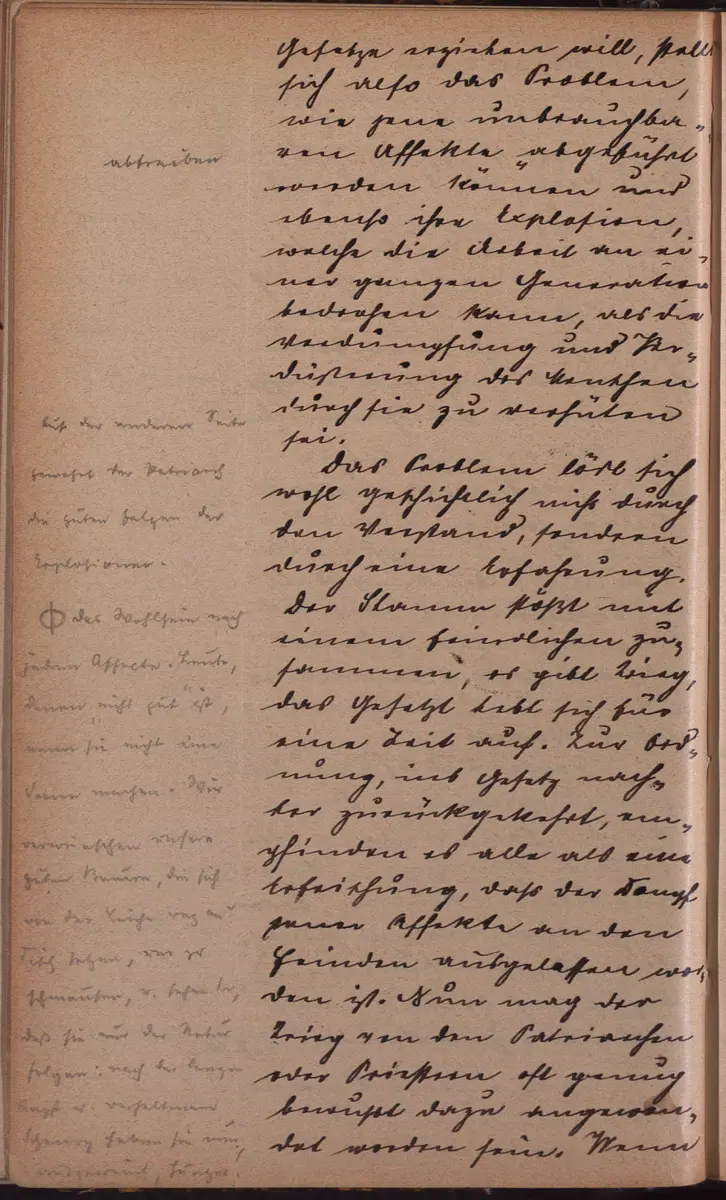 Gesetze erziehen will, stellt
sich also das Problem,
wie jene unbrauchba-
ren Affekte „abgeführt"
werden können und
ebenso ihre Explosion,
welche die Arbeit an ei-
ner ganzen Generation
bedrohen kann, als die
Verdumpfung und Ver-
düsterung des Menschen
durch sie zu verhüten
sei.
Das Problem löst sich
wohl geschichtlich nicht durch
den Verstand, sondern
durch eine Erfahrung.
Der Stamm stößt mit
einem feindlichen zu-
sammen, es gibt Krieg,
das Gesetz hebt sich für
eine Zeit auf. Zur Ord-
nung, ins Gesetz nach-
her zurückgekehrt, em-
pfinden es alle als eine
Erfrischung, daß der Dampf
jener Affekte an den
Feinden ausgelassen wor-
den ist. Nun mag der
Krieg von den Patriarchen
oder Priestern oft genug
bewußt dazu angewen-
det worden sein. Wenn
abtreiben
Auf der anderen Seite
gewahrt der Patriarch
die guten Folgen der
Explosionen.
das Wohlsein nach
jedem Affecte. Leute,
denen „nicht gut" ist,
wenn sie nicht eine
machen. Wir
unsere
guten Bauern, die sich
von der Leiche weg an
Tisch setzen, um zu
schmausen, u. sehen
daß sie nur der Natur
folgen: nach der langen
Angst u. verhaltenem
Schmerz haben sie nun,
Hunger.